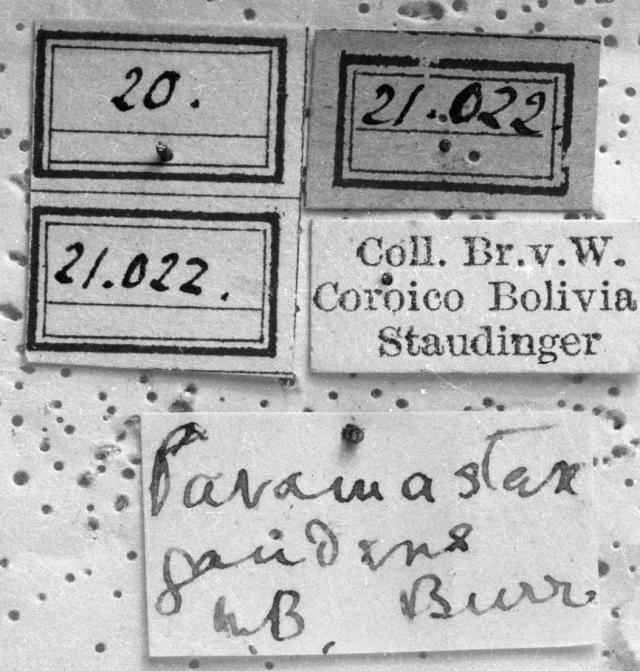 20.
21.022
21.022.
Coll. Br.v.W.
Coroico Bolivia
Staudinger
Paramastax
gaudens
Burr.